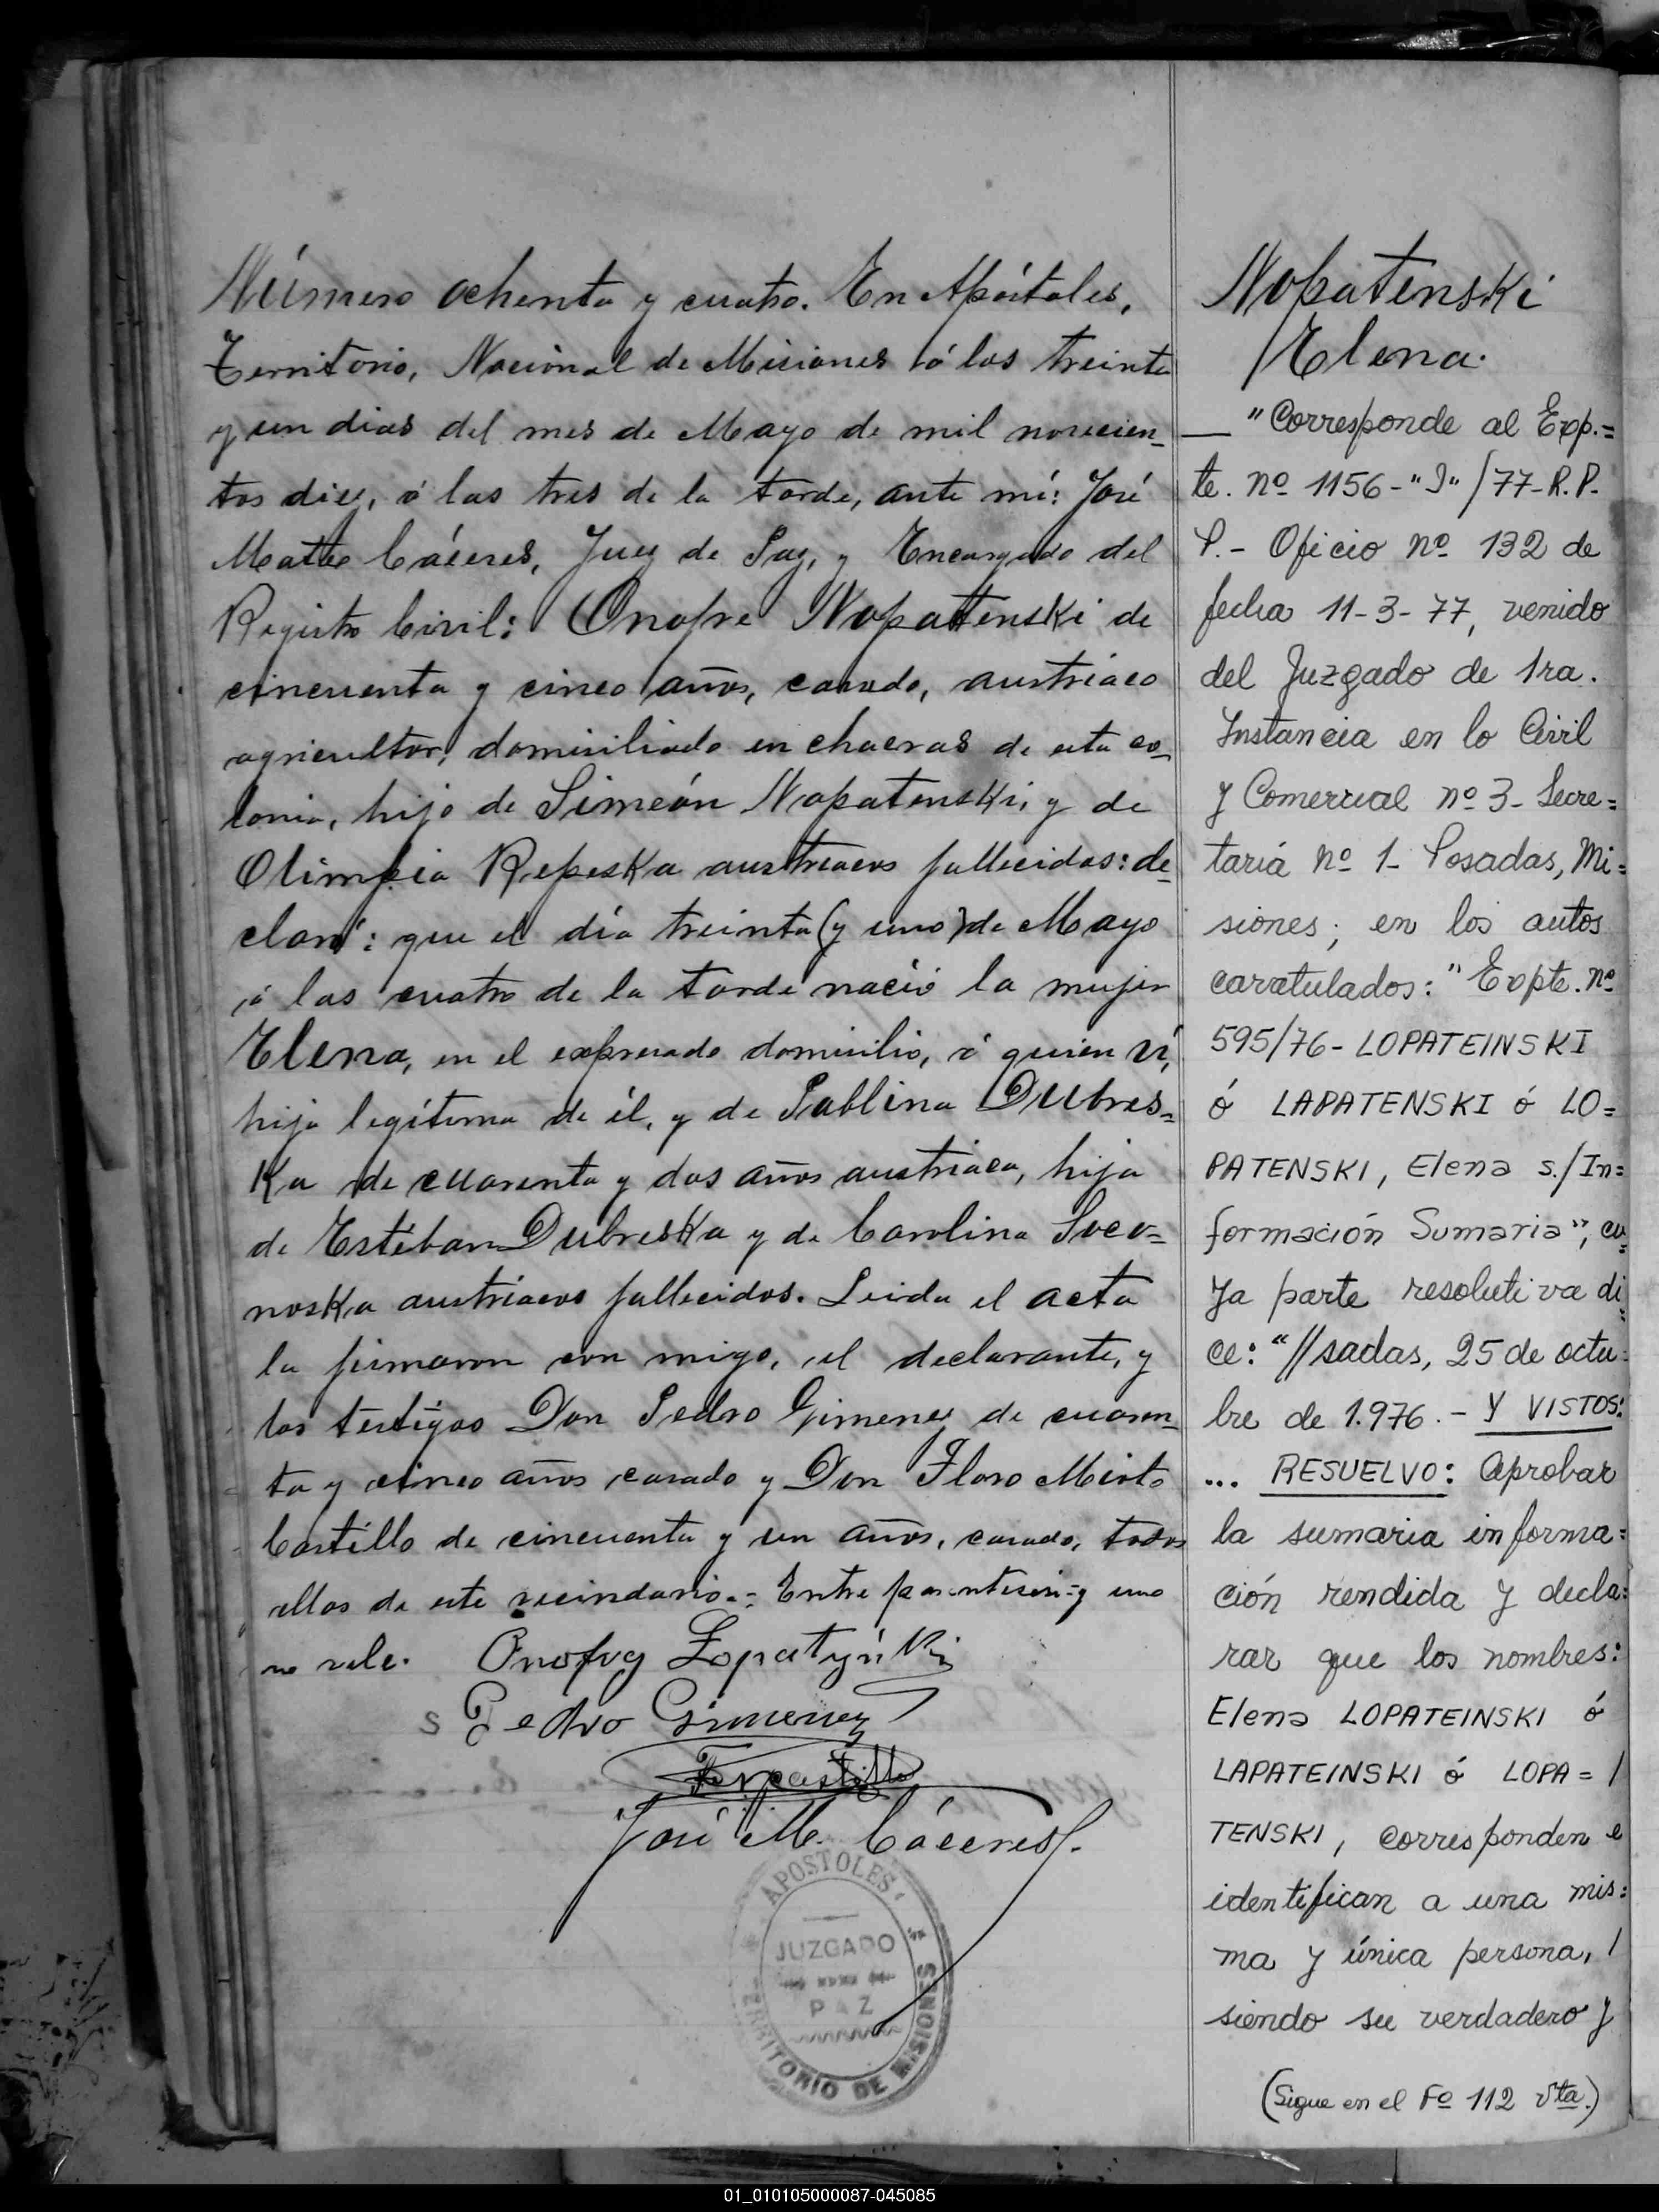 Número ochenta y cuatro. En Apóstoles,
Territorio, Nacional de Misiones á los treinta
y un dias del mes de Mayo de mil novecien-
tos diez, á las tres de la tarde, ante mí: José
Matteo Cáceres, Juez de Paz, y Encargado del
Registro Civil: Onofre Nopatenski de
cincuenta y cinco años, casado, austriaco
agricultor, domiciliado en chacras de esta co-
lonia, hijo de Simeón Nopatenski, y de
Olimpia Repeska austriacos fallecidos: de-
claró: que el día treinta (y uno) de Mayo
á las cuatro de la tarde nació la mujer
Elena, en el expresado domicilio, á quien ví,
hija legítima de él, y de Pablina Dubres-
Ka de cuarenta y dos años austriaca, hija
de Estéban Dubreska y de Carolina Soco-
noska austriacos fallecidos. Leida el acta
la firmaron con migo, el declarante, y
los testigos Don Pedro Gimenez de cuaren-
ta y cinco años casado y Don Floro
Castillo de cincuenta y un años, casado, todos
ellos de este vecindario.= Entre parentesis=y uno
no vale. Onofry Łopatyński
Pedro Gimenez
José M. Cáceres.
APOSTOLES
JUZGADO
DE
PAZ
TERRITORIO DE MISIONES
Nopatenski
Elena.
"Corresponde al Exp.=
te. nº 1156-"J"/77-R.P.
P.- Oficio nº 132 de
fecha 11-3-77, venido
del Juzgado de 1ra.
Instancia en lo Civil
y Comercial nº 3- Secre=
taría nº 1- Posadas, Mi=
siones; en los autos
caratulados: "Expte. nº
595/76- LOPATEINSKI
ó LAPATENSKI ó LO=
PATENSKI, Elena s./In=
formación Sumaria", cu=
ya parte resolutiva di=
ce: "//sadas, 25 de octu=
bre de 1.976.- Y VISTOS:
... RESUELVO: Aprobar
la sumaria informa=
ción rendida y decla=
rar que los nombres:
Elena LOPATEINSKI ó
LAPATEINSKI ó LOPA= /
TENSKI, corresponden e
identifican a una mis=
ma y única persona, /
siendo su verdadero y
(Sigue en el Fº 112 Vta.)
01_010105000087-045085